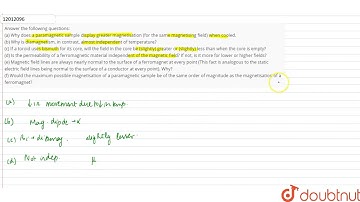 12012096
Answer the following questions:
(a) Why does a paramagnetic sample display greater magnetisation (for the same magnetising field) when cooled.
(b) Why is diamagnetism, in contrast, almost independent of temperature?
(c) If a toroid uses bismuth for its core, will the field in the core be (slightly) greater or (slightly) less than when the core is empty?
(d) Is the permeability of a ferromagnetic material independent of the magnetic field? If not, is it more for lower or higher fields?
(e) Magnetic field lines are always nearly normal to the surface of a ferromagnet at every point (This fact is analogous to the static
electric field lines being normal to the surface of a conductor at every point). Why?
(f) Would the maximum possible magnetisation of a paramagnetic sample be of the same order of magnitude as the magnetisation of a
ferromagnet?
(a) ↓ in movement due to ↓ in temp.
(b) Mag. dipole → x
(c) Bi → diamag. slightly lesser
(d) Not indep. μ
doubtnut